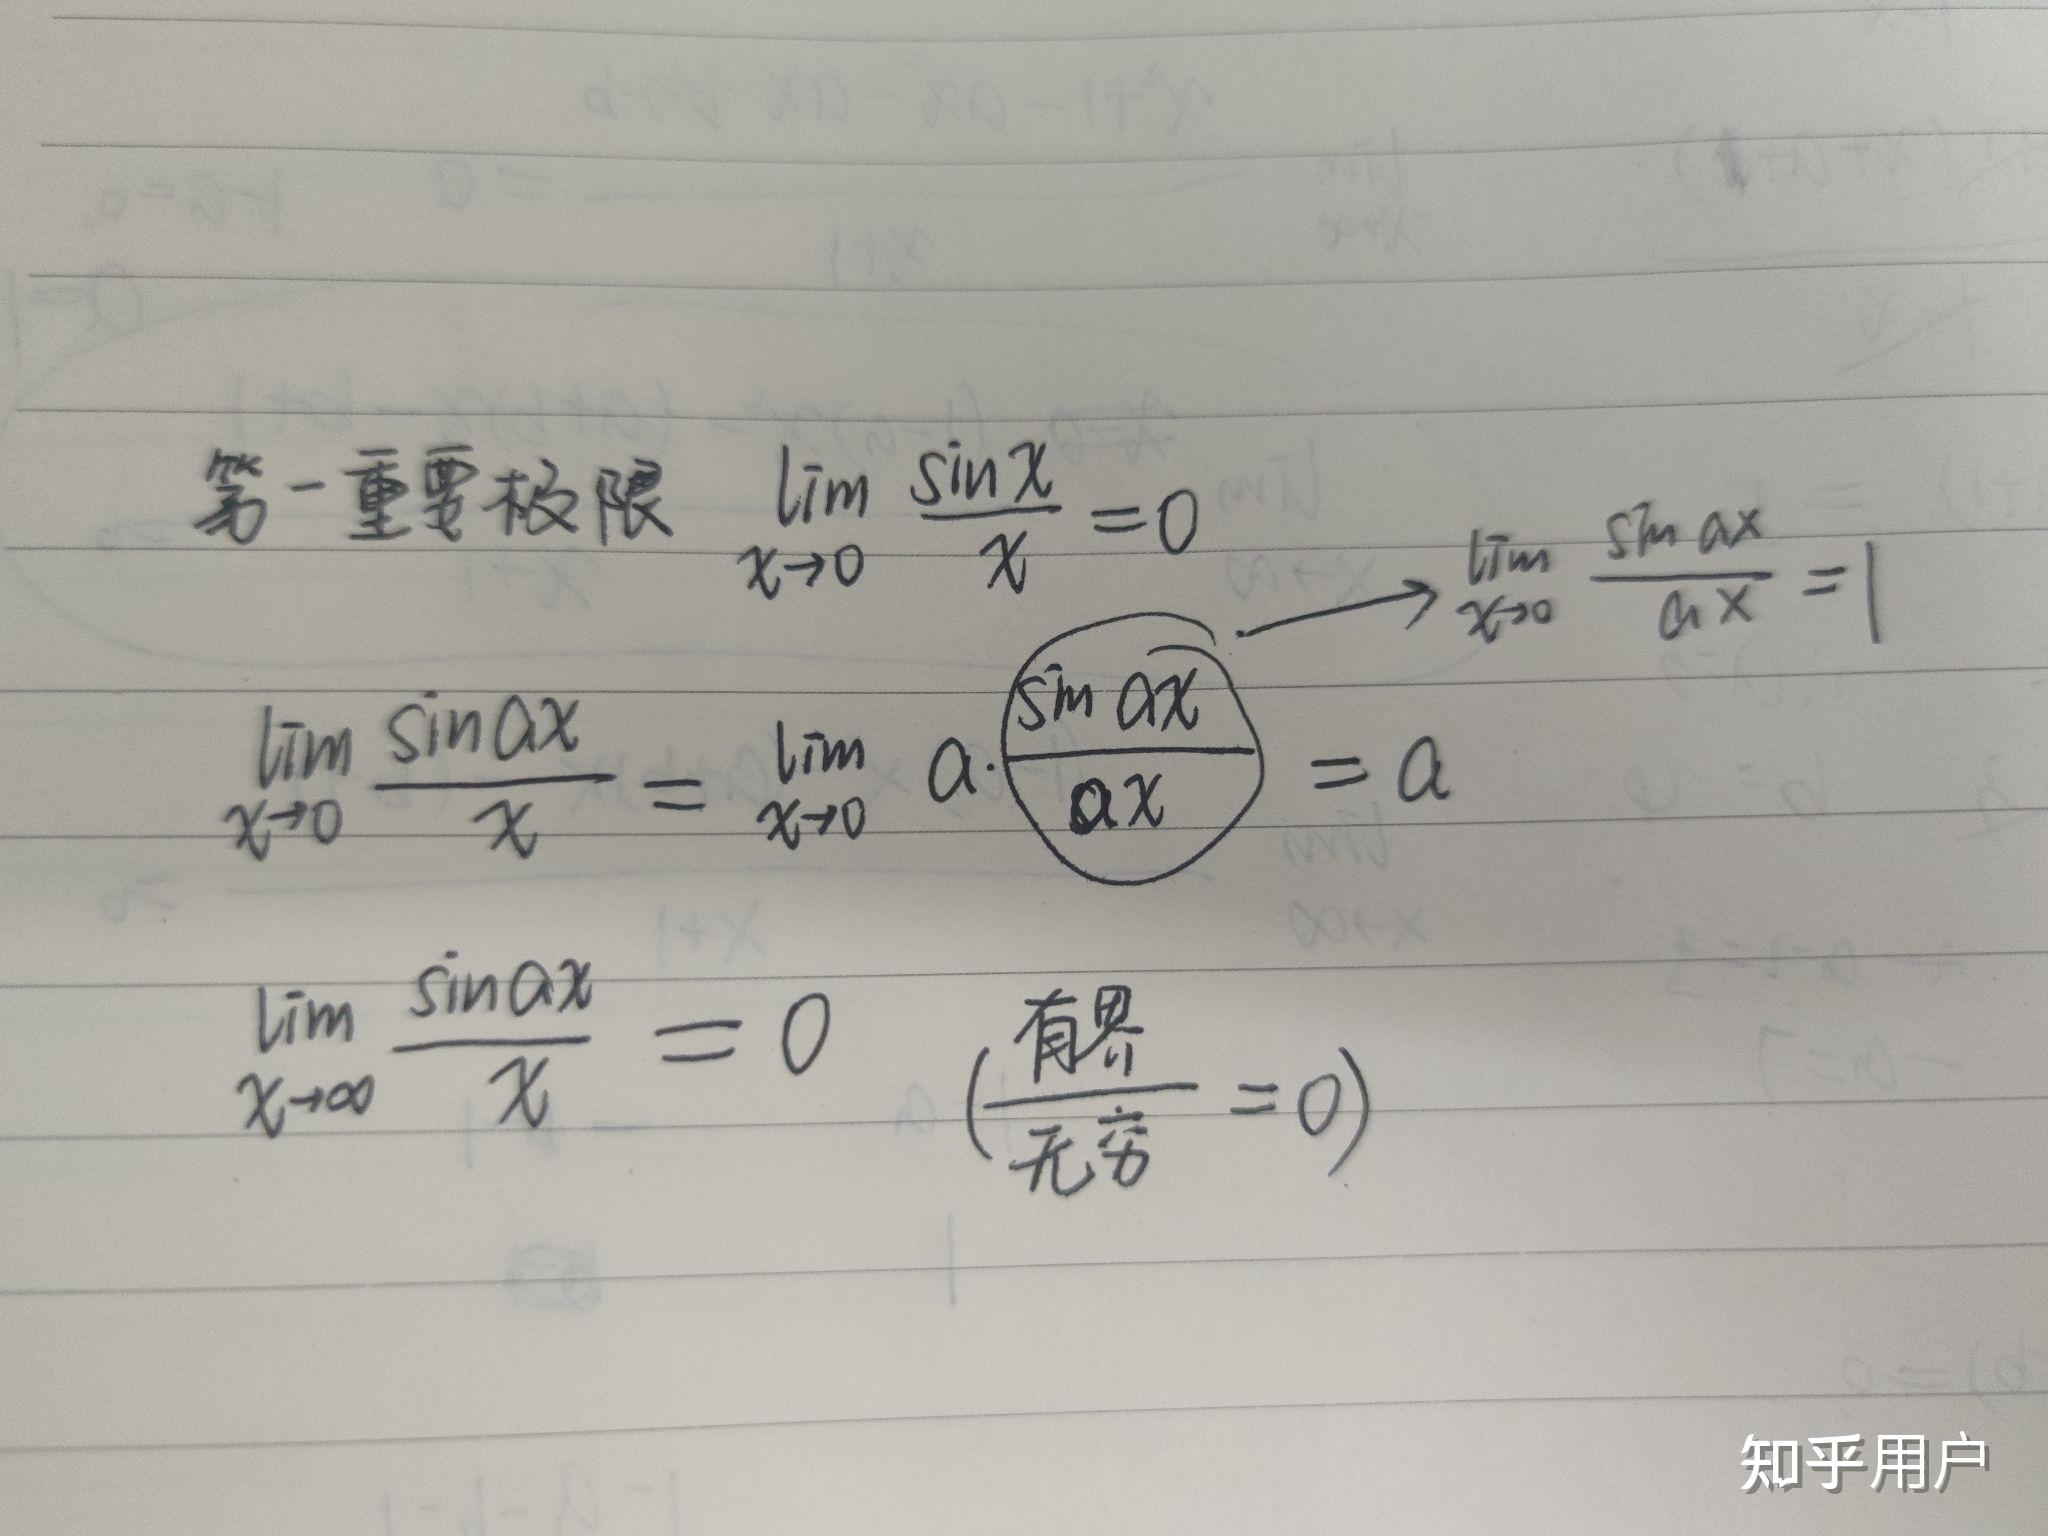 第一重要极限 lim x→0 sinx/x =0
lim x→0 sin ax/ax =1
lim x→0 sin ax/x = lim x→0 a· sin ax/ax = a
lim x→∞ sin ax/x = 0 (有界/无穷 =0)
知乎用户